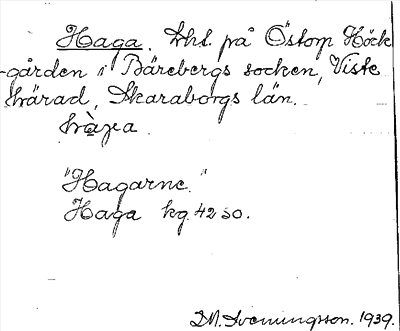 Haga. Lht. på Östorp Höck
-gården i Bärebergs socken, Viste
härad, Skaraborgs län.
hàga
"Hagarne."
Haga kg. 42 SO.
D.M. Svenungsson. 1939.